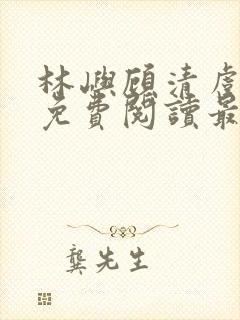 林嶼顧清虐
免費閱讀最
龔先生